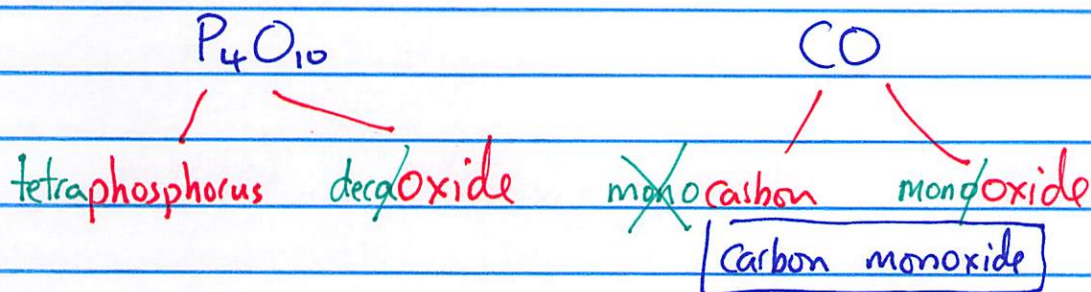 P₄O₁₀ CO
tetraphosphorus decaoxide monocarbon monooxide
carbon monoxide